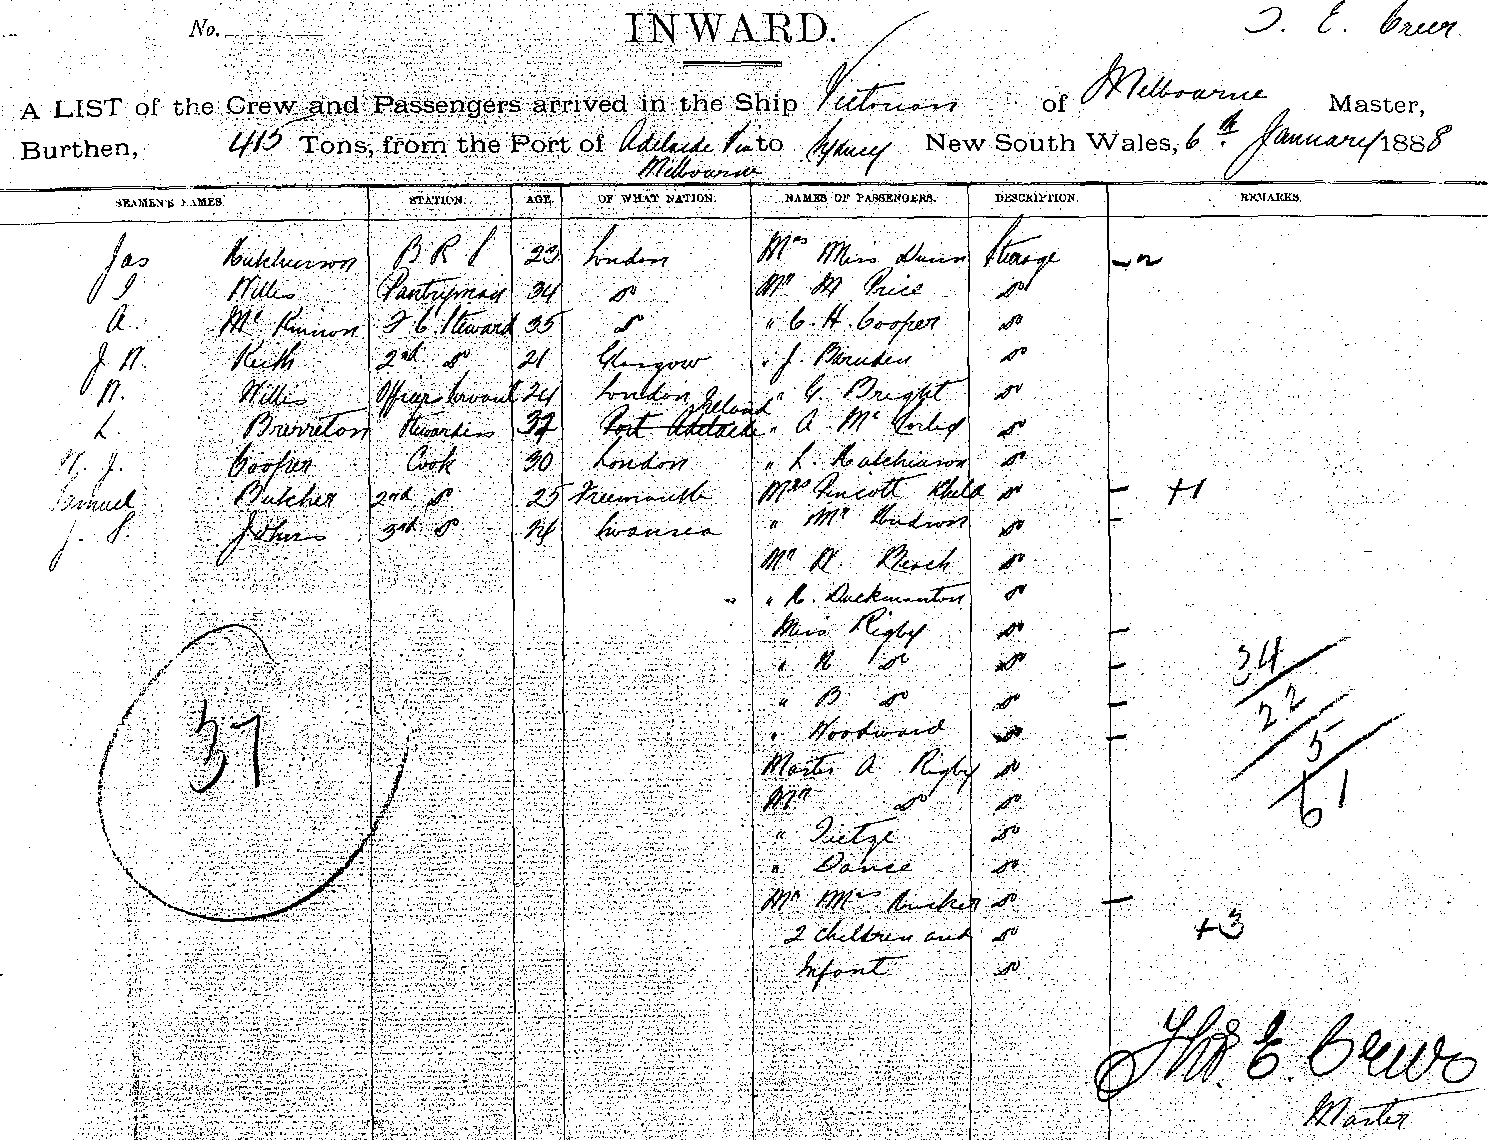 No.
INWARD.
T. E. Creer
A LIST of the Crew and Passengers arrived in the Ship Victorian of Melbourne Master,
Burthen, 415 Tons, from the Port of Adelaide Via to Sydney New South Wales, 6th January 1888
Melbourne
SEAMEN'S NAMES. STATION. AGE. OF WHAT NATION. NAMES OF PASSENGERS. DESCRIPTION. REMARKS.
Jas Hutchinson B R S 23 London Mrs Miss Dunn Steerage
J Willis Pantryman 34 do Mr M Price do
A. McKinnon F C Steward 35 do " C. H. Cooper do
J. N. Keith 2nd do 21 Glasgow " J. do
N. Willis Officers Servant 24 London " G Bright do
Ireland
L. Brerreton Stewardess 37 Port Adelaide " A Mc do
W. J. Cooper Cook 30 London " L. Hutchinson do
Samuel Butcher 2nd do 25 Freemantle Mrs Child do +1
J. S. Johns 3rd do 24 Swansea " Hudson do
Mr H. do
" R. Duckmanton do
Miss Rigby do
" R do do
" B do do
" Woodward do
Master A Rigby do
Mr do do
" Tietze do
" Dance do
Mr Mrs do
2 Children and do +3
Infant do
37
34
22
5
61
Thos. E. Creer
Master